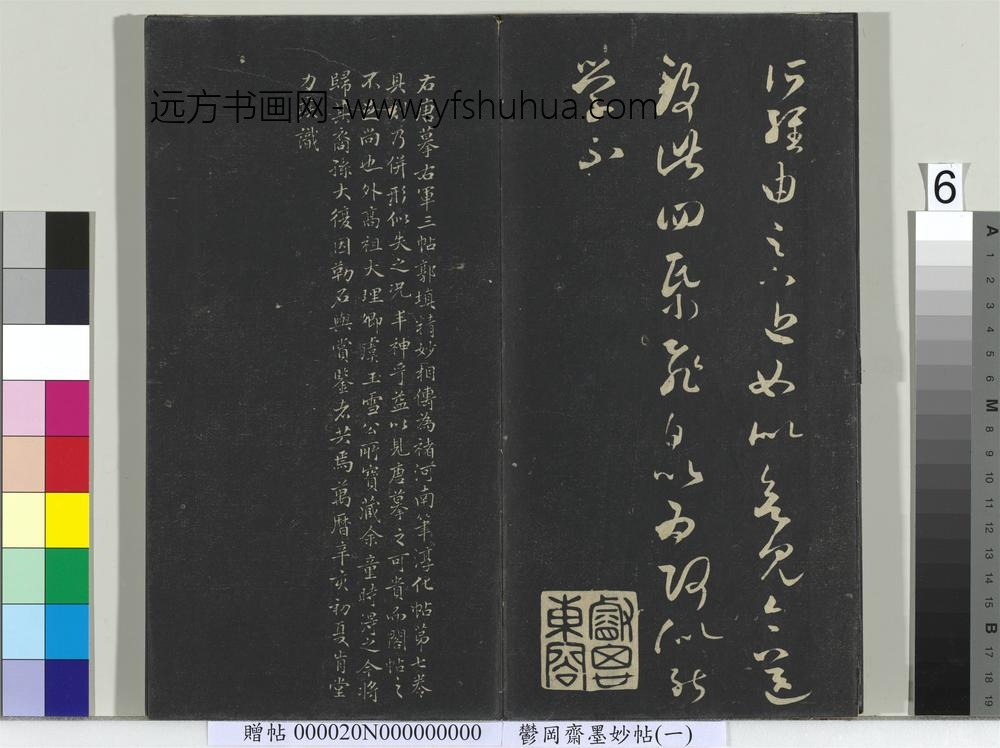 經由
致此四紙飛白以為何似能
學不
睿思東閣
右唐摹右軍三帖郭填精妙相傳為褚河南筆淳化帖第七卷
具有乃併形似失之況丰神乎益以見唐摹之可貴而閣帖之
不足尚也外高祖大理卿虞玉雪公所寶藏余童時得之今將
歸其裔孫大復因勒石與賞鑒者共焉萬曆辛亥初夏肯堂
力疾識
远方书画网-www.yfshuhua.com
6
A 1 2 3 4 5 6 M 8 9 10 11 12 13 14 15 B 17 18 19
贈帖 000020N000000000 鬱岡齋墨妙帖(一)